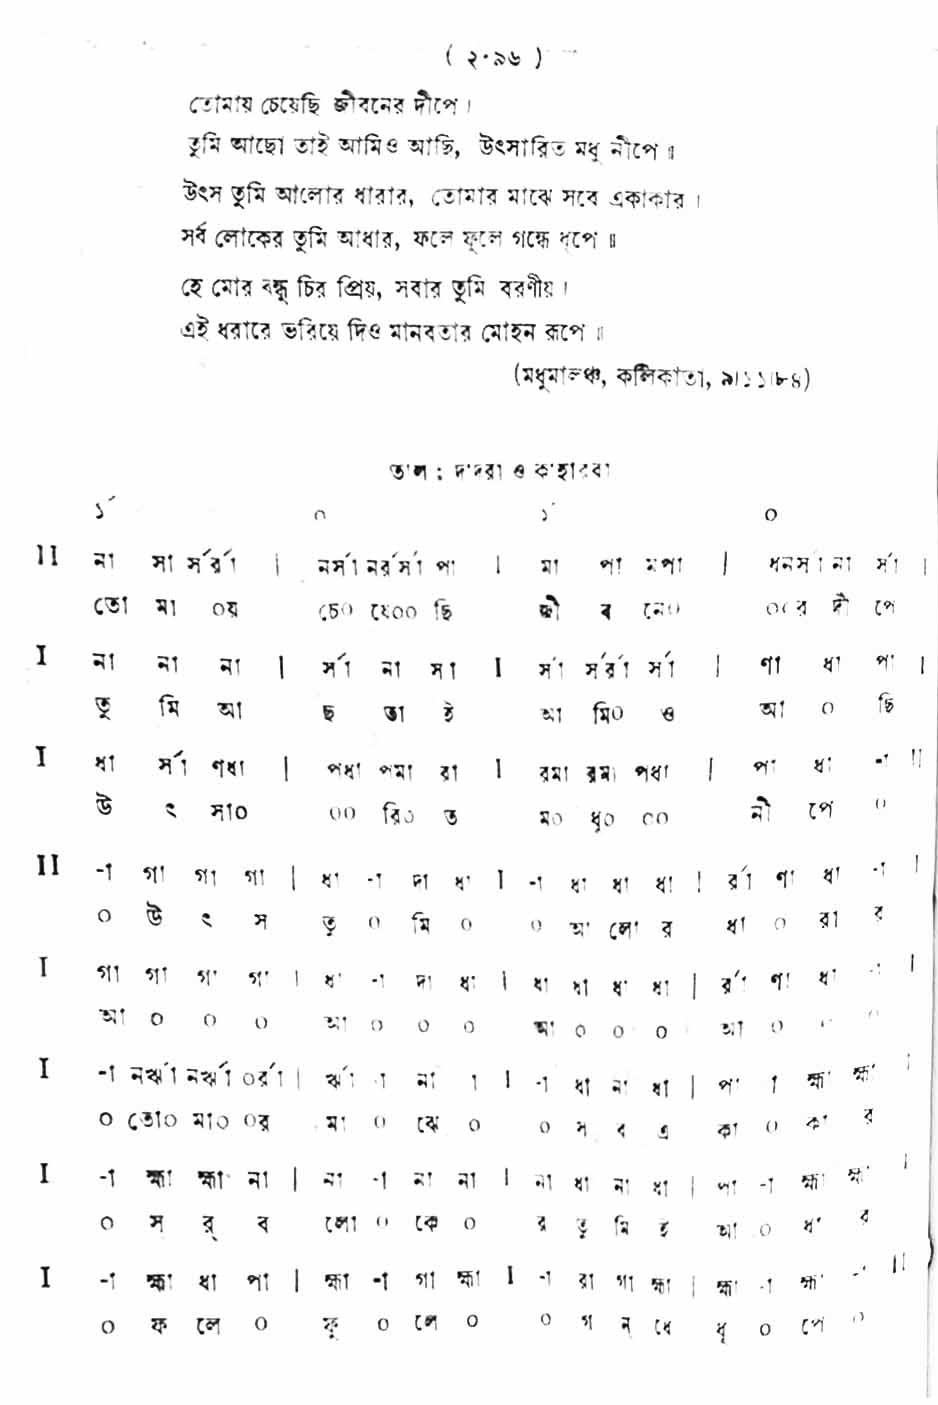 ( ২৭৯৬ )
তোমায় চেয়েছি জীবনের দীপে ।
তুমি আছো তাই আমিও আছি, উৎসারিত মধু নীপে ॥
উৎস তুমি আলোর ধারার, তোমার মাঝে সবে একাকার ।
সর্ব লোকের তুমি আধার, ফলে ফুলে গন্ধে ধূপে ॥
হে মোর বন্ধু চির প্রিয়, সবার তুমি বরণীয় ।
এই ধরারে ভরিয়ে দিও মানবতার মোহন রূপে ॥
(মধুমালঞ্চ, কলিকাতা, ৯।১১।৮৪)
তাল : দাদরা ও কাহারবা
১´ ০ ১´ ০
II না সা র্সর্রা | নর্সা নর্রর্সা পা | মা পা মপা | ধনর্সা না র্সা |
তো মা ০য় চে০ য়ে০০ ছি জী ব নে০ ০০র দী পে
I না না না | র্সা না সা I র্সা র্সর্রা র্সা | ণা ধা পা |
তু মি আ ছ তাই ই আ মি০ ও আ ০ ছি
I ধা র্সা ণধা | পধা পমা রা I রমা রমা পধা | পা ধা -া II
উ ৎ সা০ ০০ রি০ ত ম০ ধু০ ০০ নী পে ০
II -া গা গা গা | ধা -া দা ধা I -া ধা ধা ধা | র্রা ণা ধা -া |
০ উ ৎ স তু ০ মি ০ ০ আ লো র ধা ০ রা র
I গা গা গা গা | ধা -া দা ধা | ধা ধা ধা ধা | র্রা ণা ধা -া |
আ ০ ০ ০ আ ০ ০ ০ আ ০ ০ ০ আ ০ ০ ০
I -া নর্ঋা নর্ঋা ০র্রা | র্ঋা -া না া I -া ধা না ধা | পা া হ্মা হ্মা |
০ তো০ মা০ ০র মা ০ ঝে ০ ০ স ব এ কা ০ কা র
I -া হ্মা হ্মা না | না -া না না | না ধা না ধা | পা -া হ্মা হ্মা |
০ স র্ ব লো ০ কে ০ র তু মি ই আ ০ ধা র
I -া হ্মা ধা পা | হ্মা -া গা হ্মা I -া রা গা হ্মা | হ্মা -া হ্মা -া II
০ ফ লে ০ ফু ০ লে ০ ০ গ ন্ ধে ধূ ০ পে ০